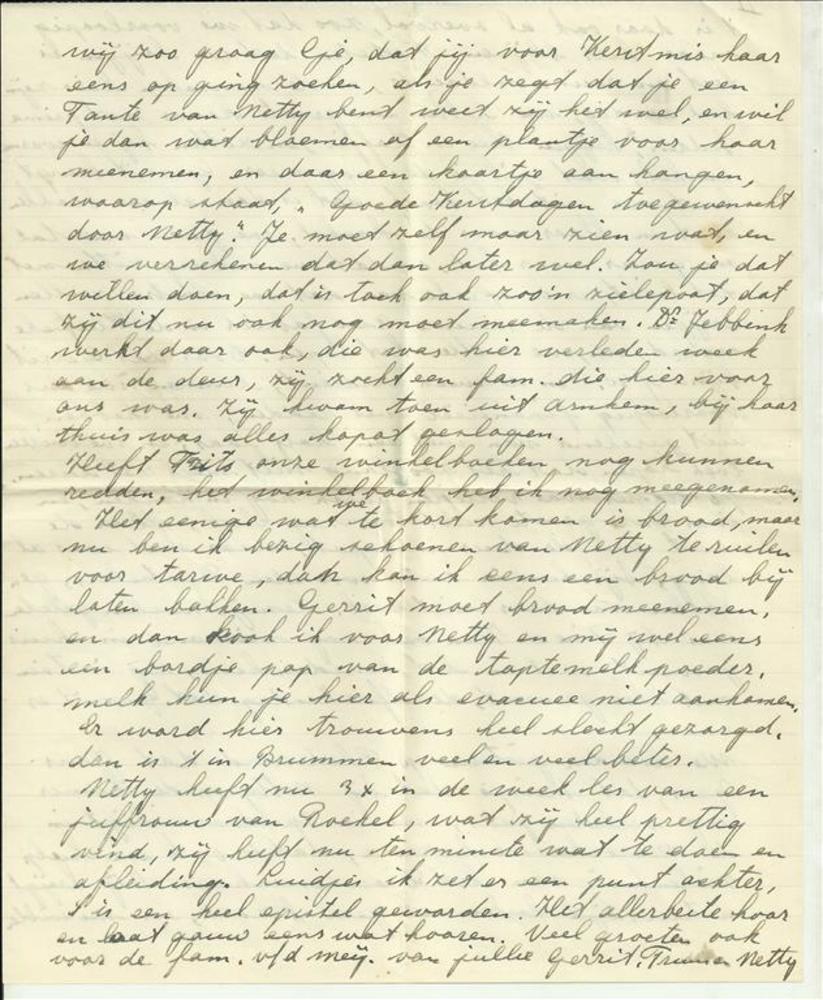 wij zoo graag Cje, dat jij voor Kerstmis haar
eens op ging zoeken, als je zegt dat je een
Tante van Netty bent weet zij het wel, en wil
je dan wat bloemen of een plantje voor haar
meenemen, en daar een kaartje aan hangen,
waarop staat, „Goede Kerstdagen toegewenscht
door Netty". Je moet zelf maar zien wat, en
we verrekenen dat dan later wel. Zou je dat
willen doen, dat is toch ook zoo'n zielepoot, dat
zij dit nu ook nog moet meemaken. Dr. Jebbink
werkt daar ook, die was hier verleden week
aan de deur, zij zocht een fam. die hier voor
ons was. Zij kwam toen uit Arnhem, bij haar
thuis was alles kapot geslagen.
Heeft Frits onze winkelboeken nog kunnen
redden, het winkelboek heb ik nog meegenomen.
Het eenige wat we te kort komen is brood, maar
nu ben ik bezig schoenen van Netty te ruilen
voor tarwe, dan kan ik eens een brood bij
laten bakken. Gerrit moet brood meenemen,
en dan kook ik voor Netty en mij wel eens
een bordje pap van de taptemelkpoeder,
melk kun je hier als evacuee niet aankomen.
Er word hier trouwens heel slecht gezorgd,
dan is 't in Brummen veel en veel beter.
Netty heeft nu 3 x in de week les van een
juffrouw van Roekel, wat zij heel prettig
vind, zij heeft nu ten minste wat te doen en
afleiding. Luidjes ik zet er een punt achter,
't is een heel epistel geworden. Het allerbeste hoor
en laat gauw eens wat hooren. Veel groeten ook
voor de fam. v/d Meij. van jullie Gerrit, Truus en Netty